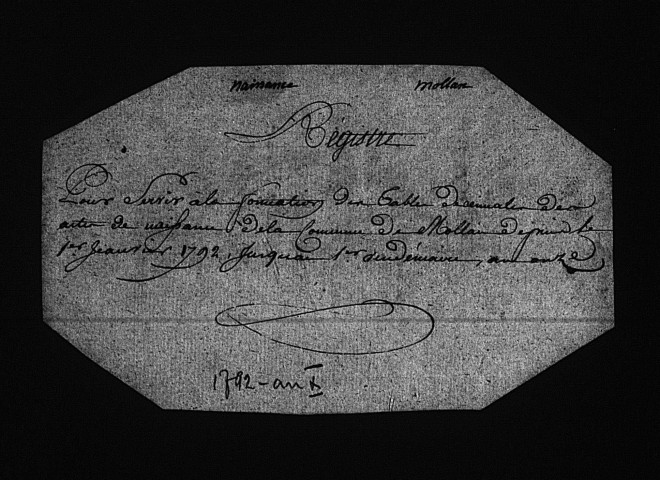 naissance Mollau
Régistre
Pour Servir à la formation des Tables décennales des
actes de naissance de la Commune de Mollau depuis le
1er Jeanvier 1792, Jusqu'au 1er vendémiaire, an onze
1792 - an X